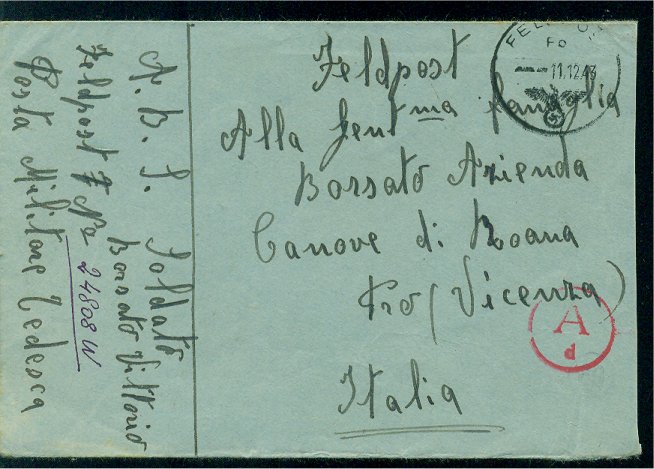 Feldpost
Alla Gent ma famiglia
Borsato Azienda
Canove di Roana
Pro (Vicenza)
Italia
FELDPO
Fo
11.12.43
A
d
A. B. S. Soldato
Borsato Vittorio
Feldpost No 24808 W
Posta Militare Tedesca